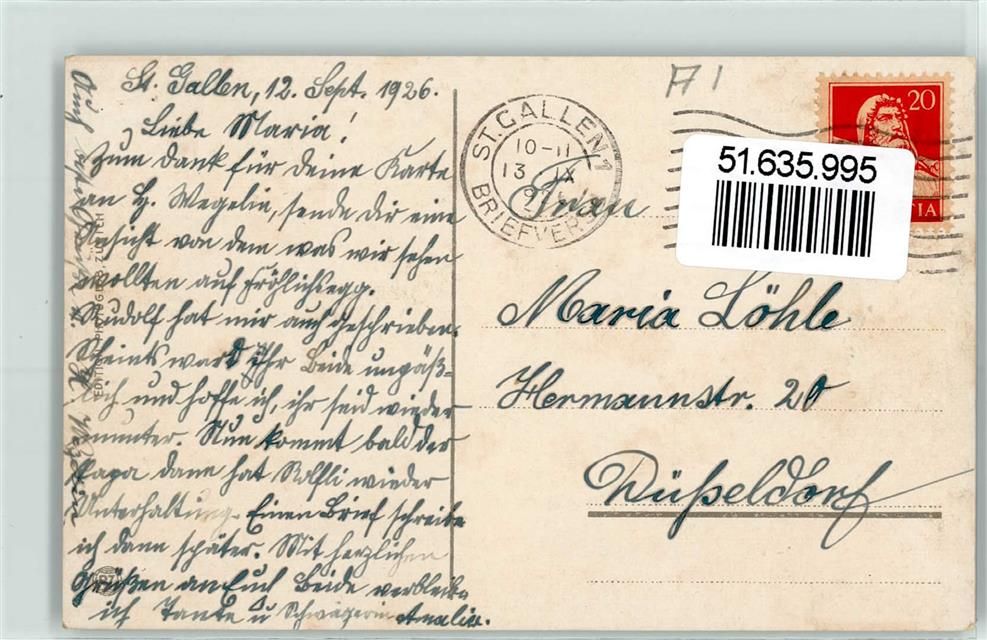 St. Gallen, 12. Sept. 1926.
Liebe Maria!
Zum Dank für deine Karte
an H. Wegelin, sende dir eine
Ansicht von dem was wir sehen
wollten auf Fröhlichsegg.
Rudolf hat mir auch geschrieben.
Scheints ward ihr Beide unpäß-
lich und hoffe ich, ihr seid wieder
munter. Nun kommt bald der
Papa dann hat Rolfli wieder
Unterhaltung. Einen Brief schreibe
ich dann später. Mit herzlichen
Grüßen an Euch Beide verbleibe
ich Tante u Schwägerin Amalie.
Auch
EDITION PHOTOGLOB, ZÜRICH
PZ
A 1
ST. GALLEN 1
10-11
13 IX
BRIEFVERS
20
51.635.995
Frau
Maria Löhle
Hermannstr. 20
Düßeldorf